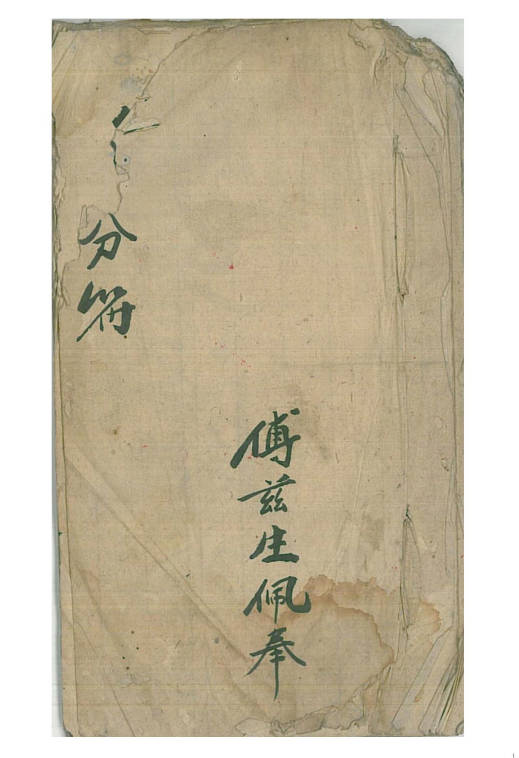 分符
傅兹生佩奉